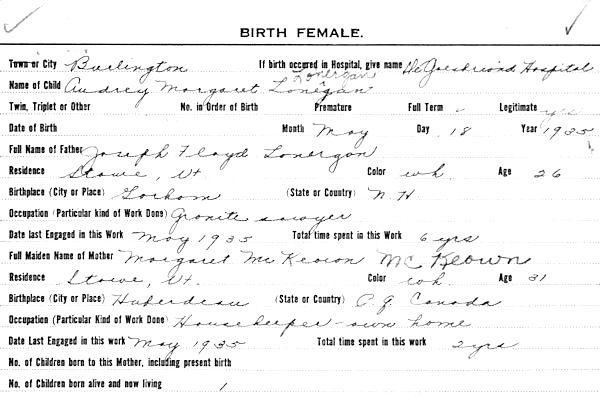 BIRTH FEMALE.
Town or City Burlington If birth occured in Hospital, give name De Goesbriand Hospital
Lonergan
Name of Child Audrey Margaret Lonegan
Twin, Triplet or Other No. in Order of Birth Premature Full Term ✓ Legitimate yes
Date of Birth Month May Day 18 Year 1935
Full Name of Father Joseph Floyd Lonergon
Residence Stowe, Vt Color wh. Age 26
Birthplace (City or Place) Gorham (State or Country) N. H
Occupation (Particular kind of Work Done) Granite sawyer
Date last Engaged in this Work May 1935 Total time spent in this Work 6 yrs
Full Maiden Name of Mother Margaret Mc Keown Mc Keown
Residence Stowe, Vt. Color wh. Age 31
Birthplace (City or Place) Huberdeau (State or Country) P. Q Canada
Occupation (Particular Kind of Work Done) Housekeeper - own home
Date Last Engaged in this work May 1935 Total time spent in this work 2 yrs
No. of Children born to this Mother, including present birth
No. of Children born alive and now living 1